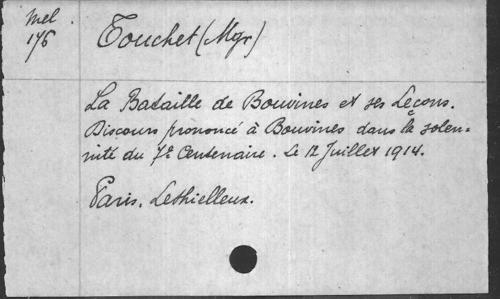 Mel.
176
Touchet (Mgr)
La Bataille de Bouvines et ses Leçons.
Discours prononcé à Bouvines dans la solen=
nité du 7e Centenaire. Le 12 Juillet 1914.
Paris. Lethielleux.